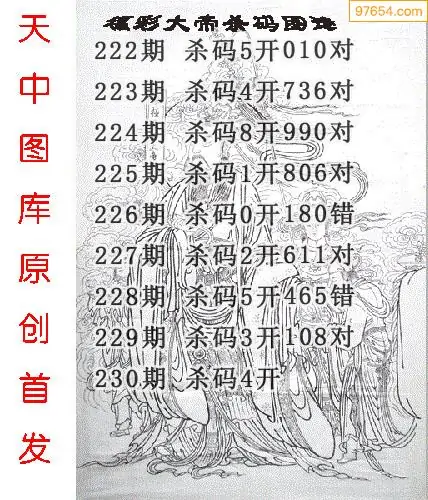 97654.com
福彩大帝杀码图谜
222期 杀码5开010对
223期 杀码4开736对
224期 杀码8开990对
225期 杀码1开806对
226期 杀码0开180错
227期 杀码2开611对
228期 杀码5开465错
229期 杀码3开108对
230期 杀码4开
天中图库原创首发